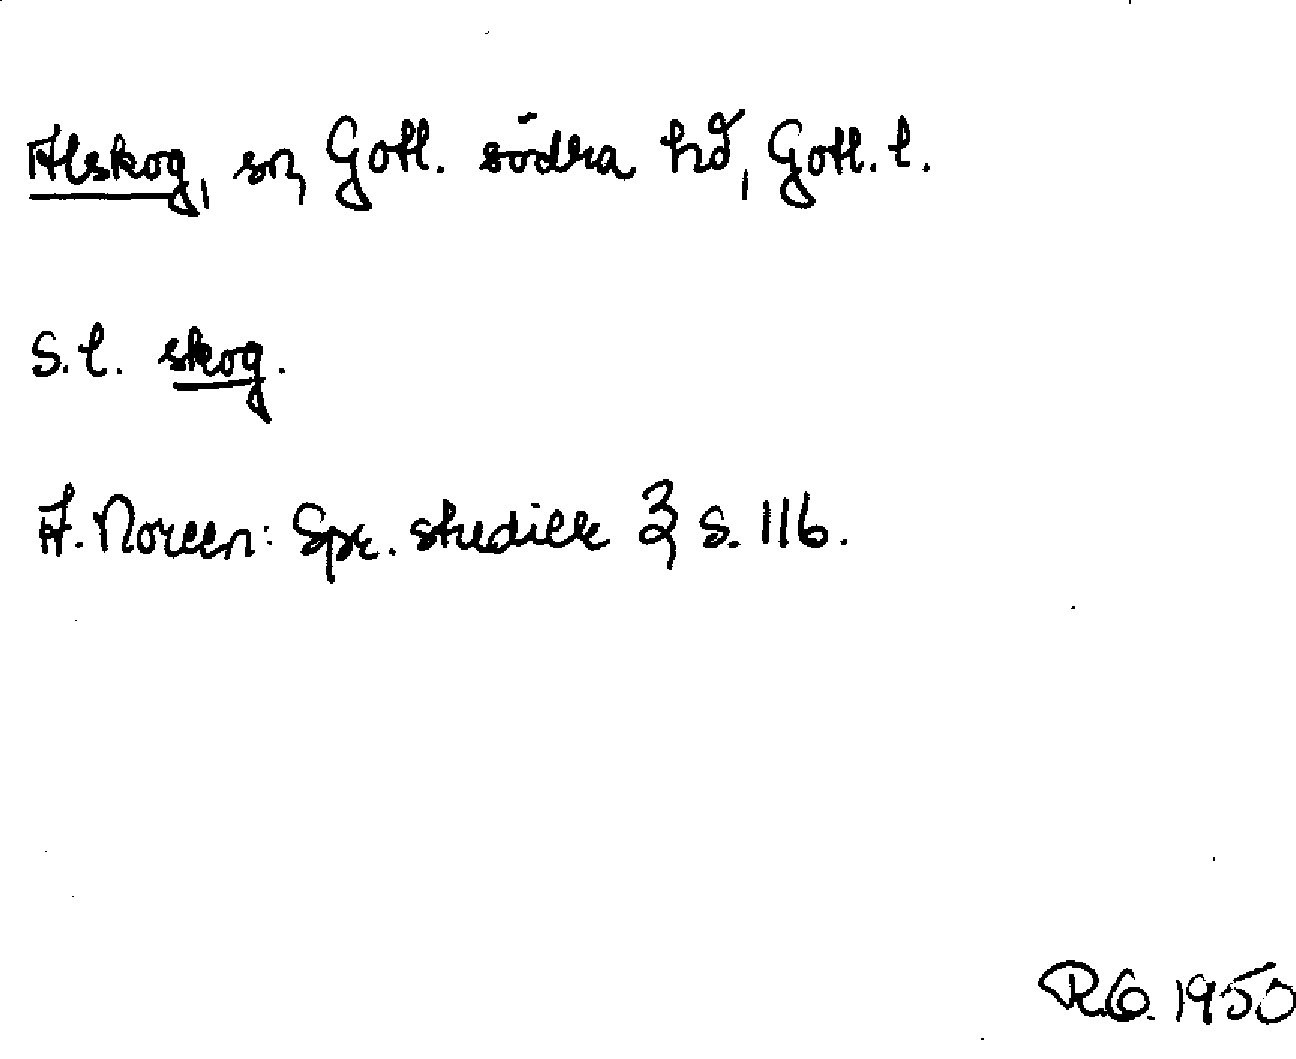 Alskog, sn, Gotl. södra hd, Gotl. l.
S. l. skog.
A. Noreen: Spr. studier 3, s. 116.
R.G. 1950